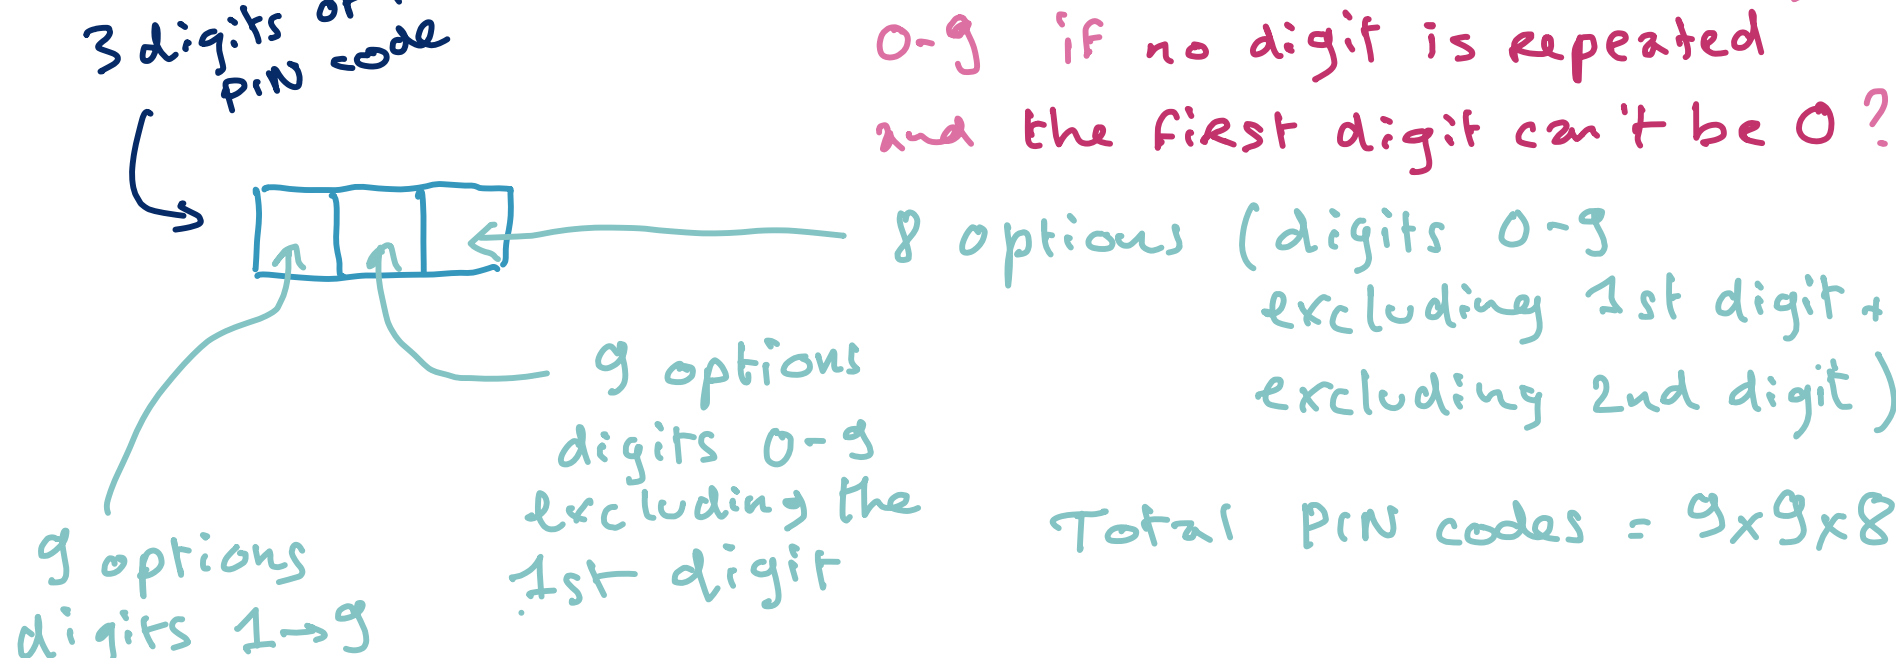 3 digits of
PIN code
0-9 if no digit is repeated
and the first digit can't be 0?
8 options (digits 0-9
excluding 1st digit +
excluding 2nd digit)
9 options
digits 0-9
excluding the
1st digit
9 options
digits 1→9
Total PIN codes = 9x9x8